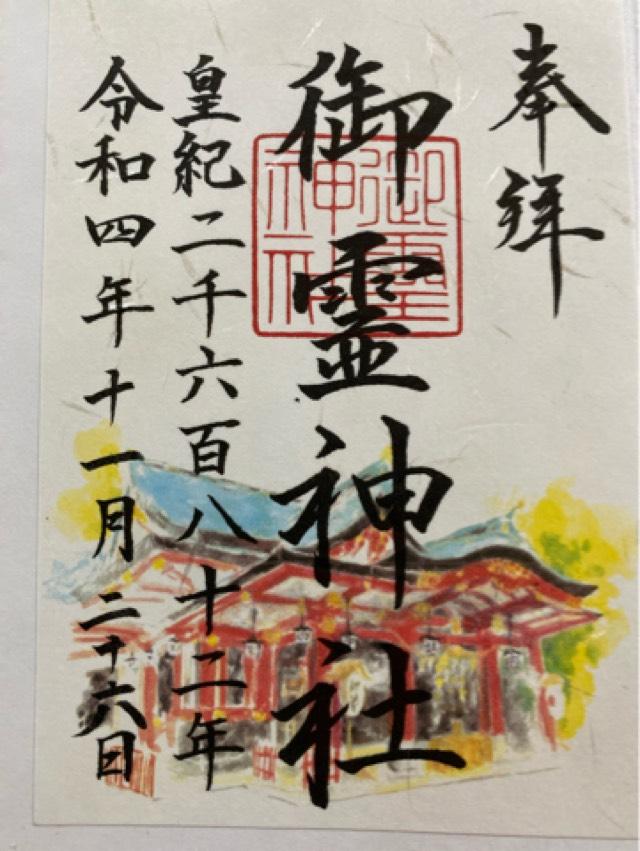 奉拝
御霊神社
御靈神社
皇紀二千六百八十二年
令和四年十一月二十六日